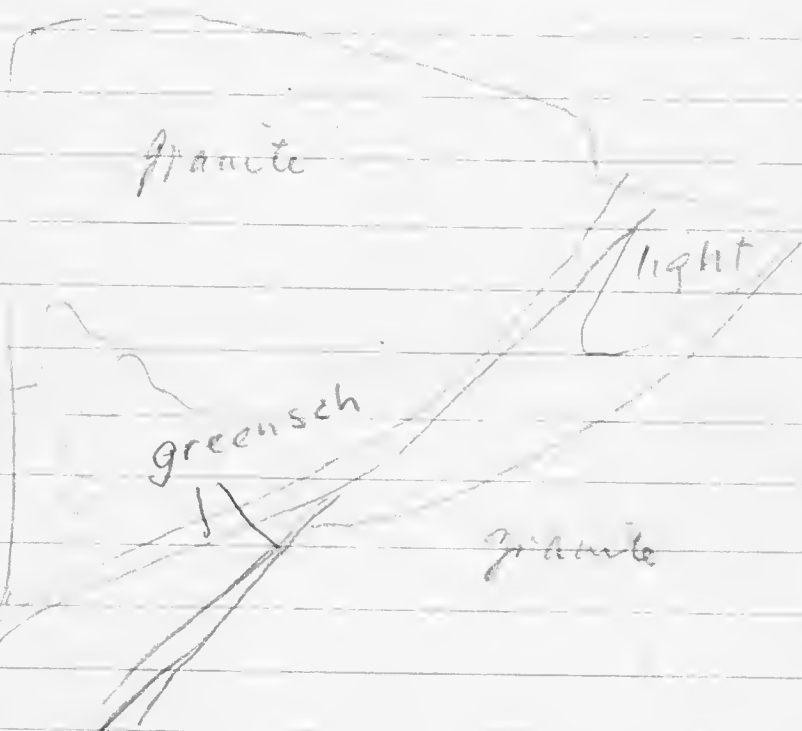 granite
light
greensch
granite